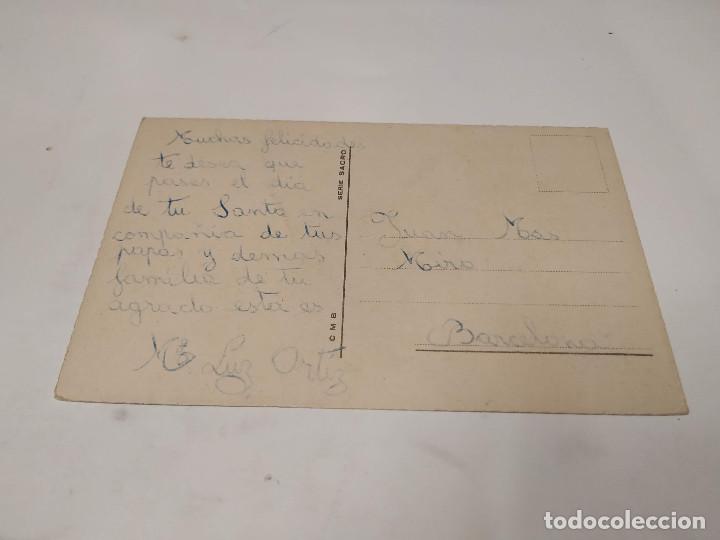 Muchas felicidades
te desea que
pases el dia
de tu Santo en
compañia de tus
papas y demas
familia de tu
agrado esta es
Mª Luz Ortiz
SERIE SACRO
C M B
Juan Mas
Miro
Barcelona
todocoleccion
todocoleccion.net